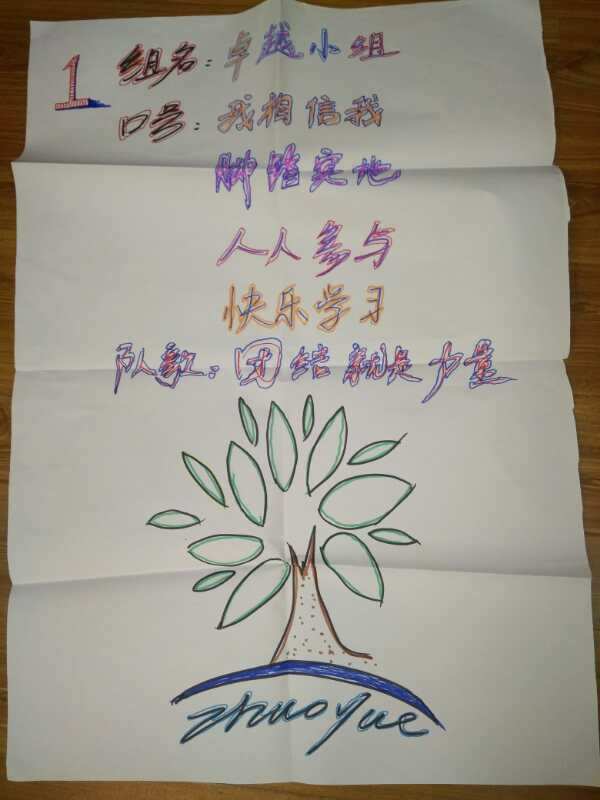 1
组名：卓越小组
口号：我相信我
脚踏实地
人人参与
快乐学习
队歌：团结就是力量
zhuoyue